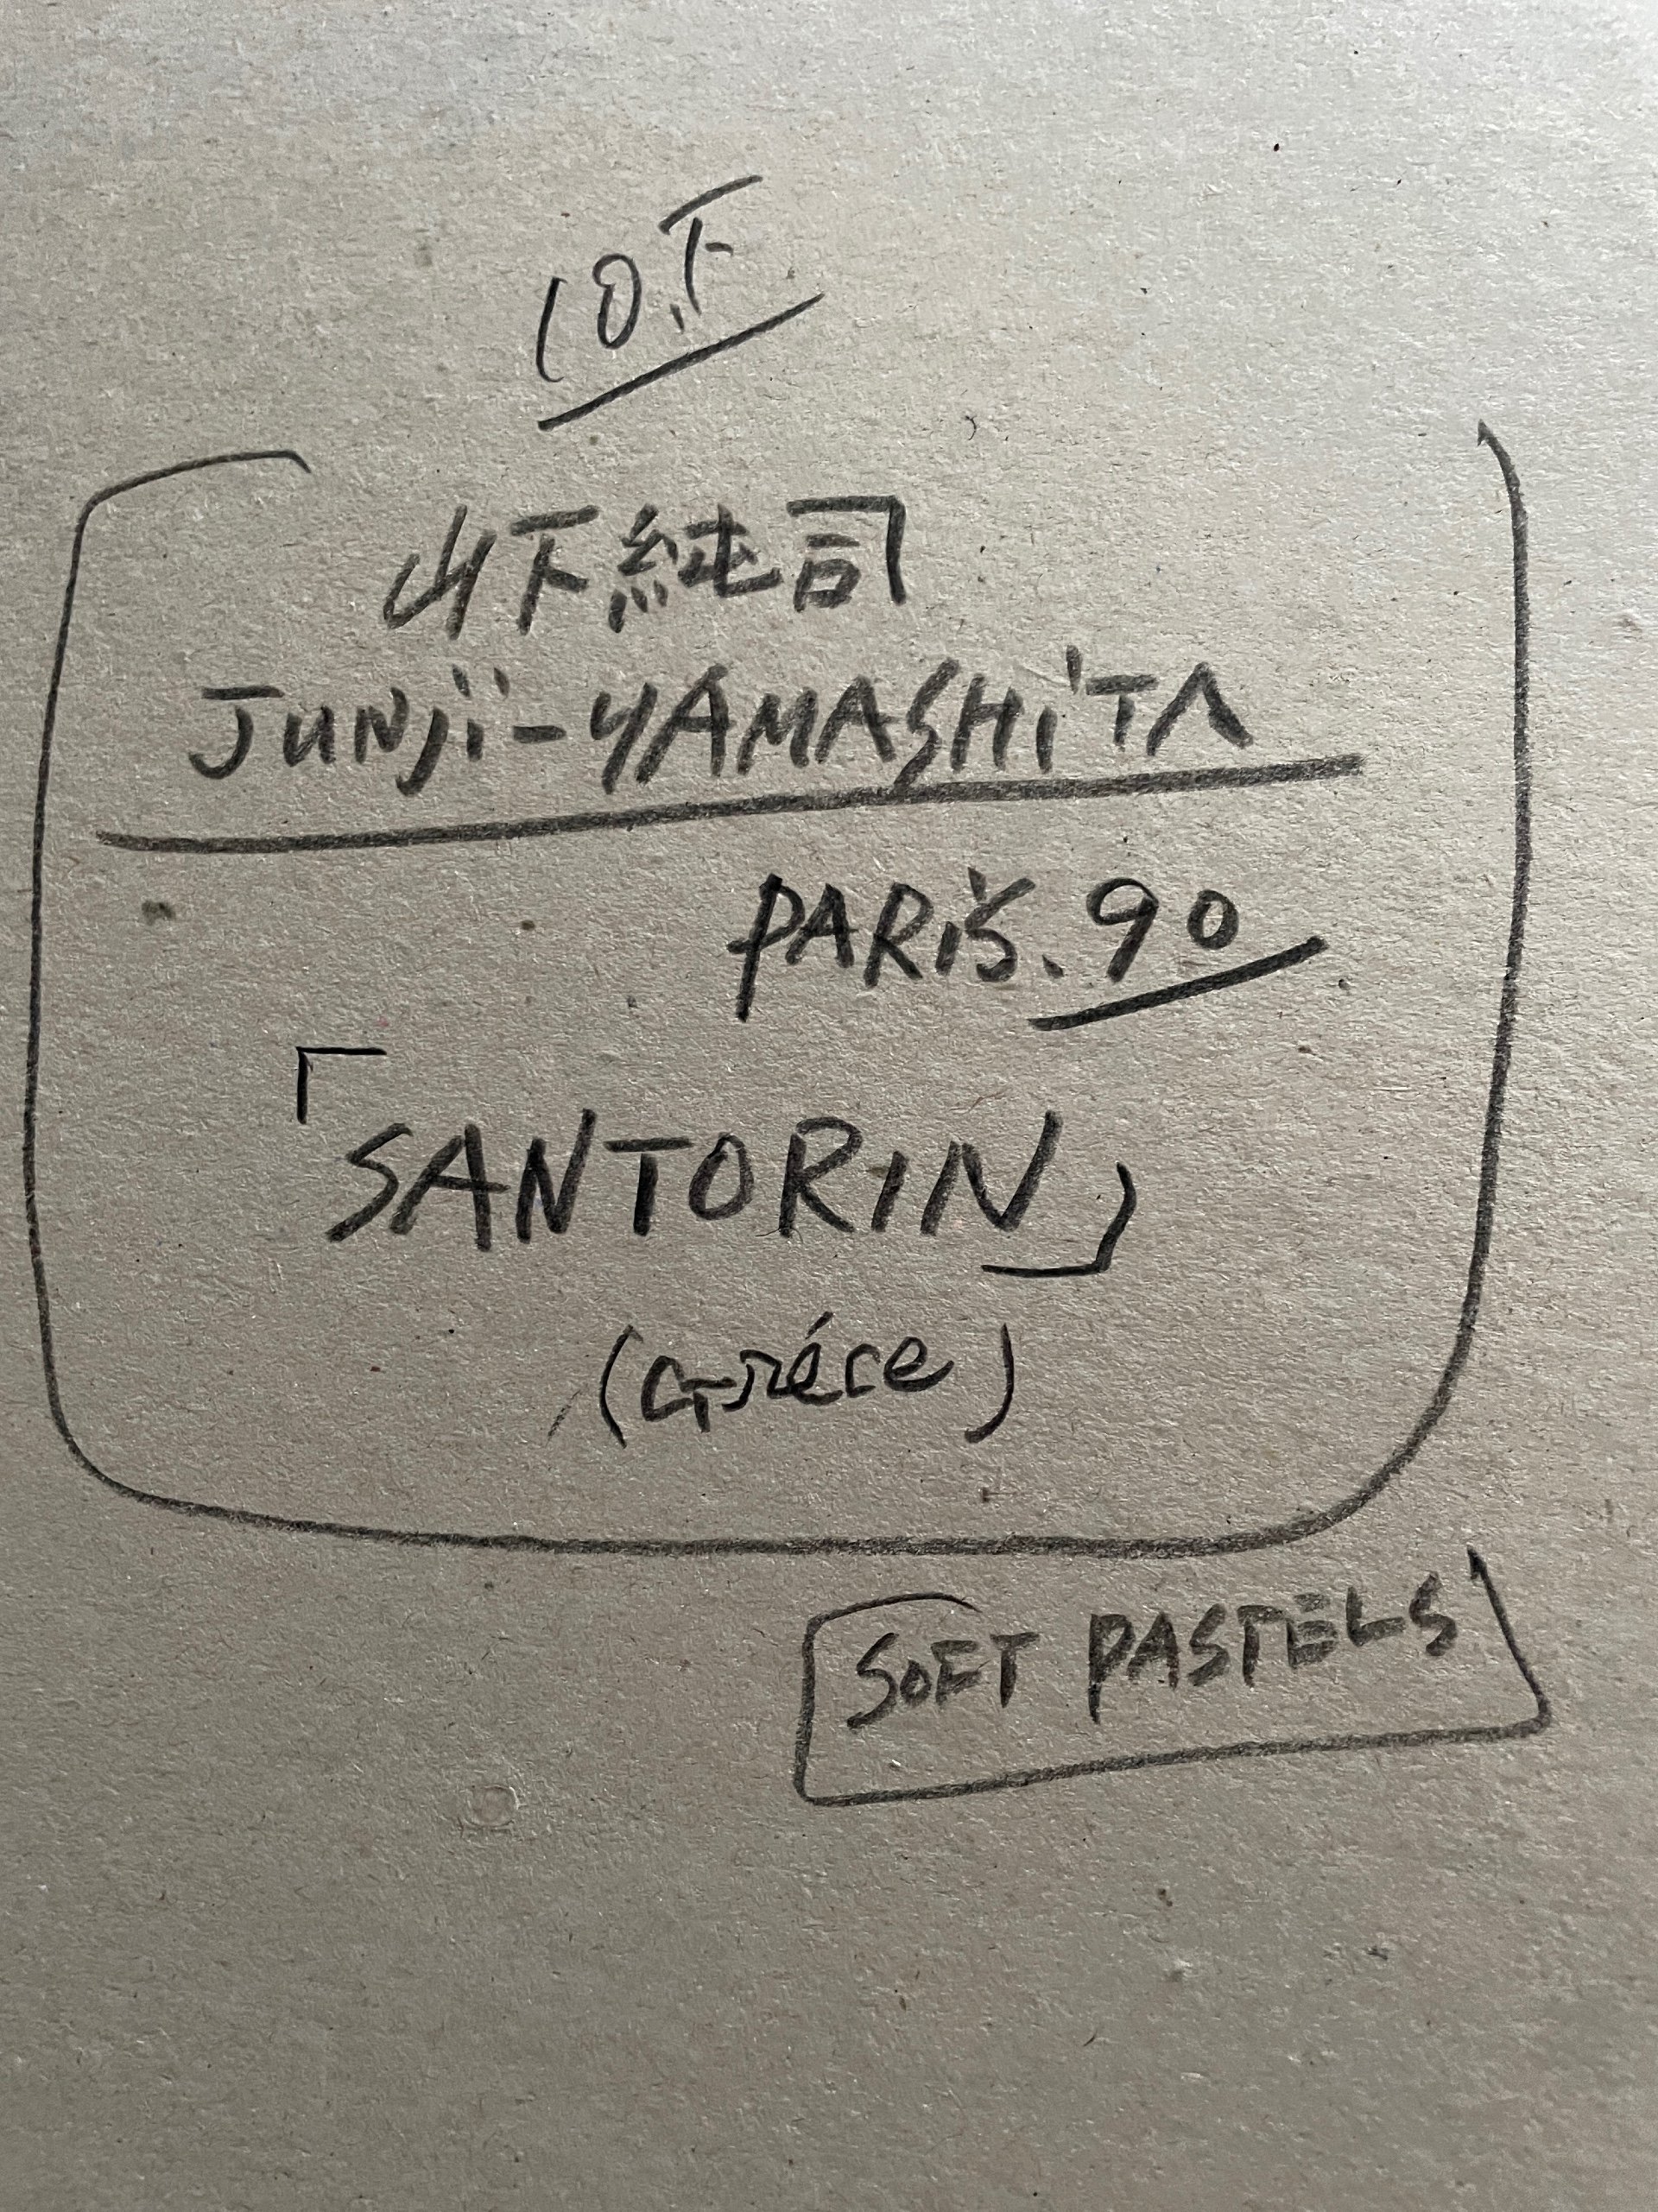 10.F
山下純司
JUNJi-YAMASHiTA
PARiS.90
「SANTORIN」
(Gréce)
SOFT PASTELS